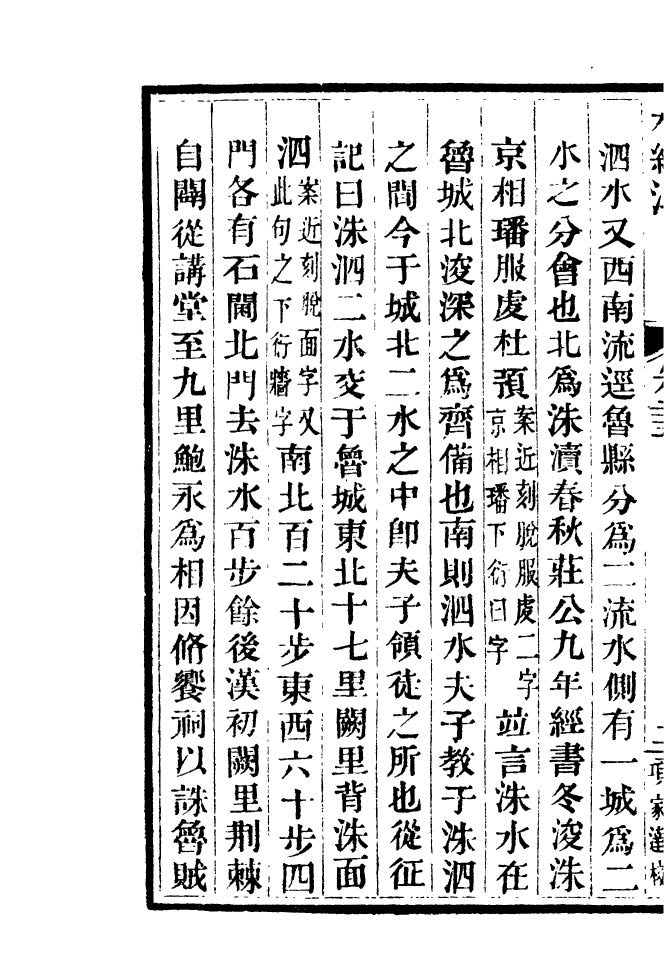 泗水又西南流逕魯縣分爲二流水側有一城爲二
水之分會也北爲洙瀆春秋莊公九年經書冬浚洙
京相璠服虔杜預案近刻脫服虔二字京相璠下衍曰字竝言洙水在
魯城北浚深之爲齊備也南則泗水夫子教于洙泗
之間今于城北二水之中卽夫子領徒之所也從征
記曰洙泗二水交于魯城東北十七里闕里背洙面
泗案近刻脫面字又此句之下衍牆字南北百二十步東西六十步四
門各有石閫北門去洙水百步餘後漢初闕里荆棘
自闢從講堂至九里鮑永爲相因脩饗祠以誅魯賊